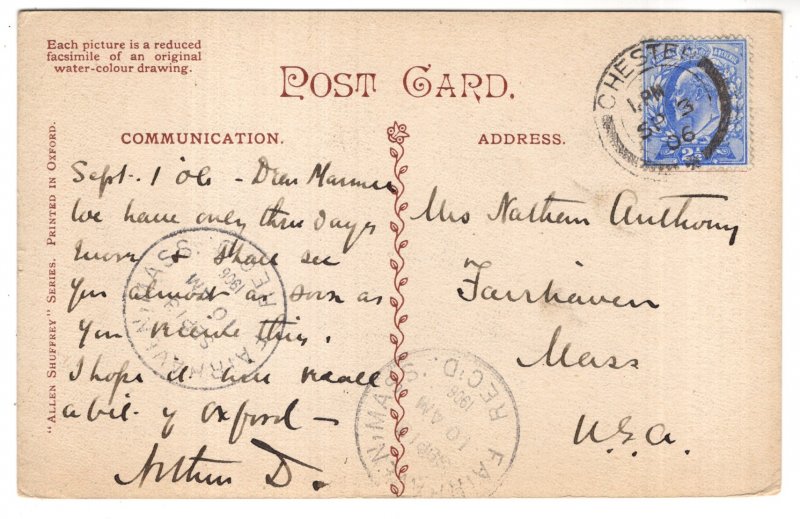 Each picture is a reduced
facsimile of an original
water-colour drawing.
POST CARD.
COMMUNICATION.
ADDRESS.
"ALLEN SHUFFREY" SERIES. PRINTED IN OXFORD.
Sept. 1 '06 - Dear
We have only three days
more & shall see
you almost as soon as
you receive this.
I hope it will recall
a bit of Oxford -
Arthur D.
Mrs Nathan Anthony
Fairhaven
Mass
U.S.A.
CHESTER
1. PM
SP 3
06
FAIRHAVEN, MASS. REC'D.
1906
10 AM
SEP 13
FAIRHAVEN, MASS. REC'D.
1906
10 AM
SEP 1